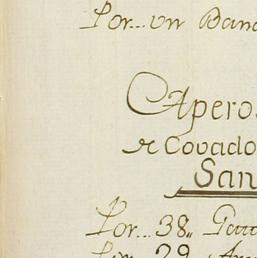 Por... un Band
Apero
de Covado
San
Por... 38,, 
Por... 29